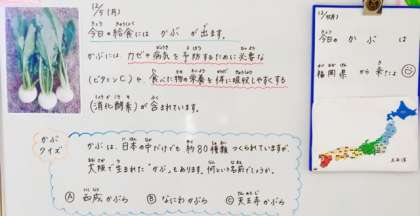 12/5(月)
今日の給食には かぶ が 出ます。
かぶには、カゼや病気を予防するために必要な
(ビタミンC)や、食べた物の栄養を体に吸収しやすくする
(消化酵素)が 含まれています。
かぶ
クイズ
かぶは、日本の中だけでも 約80種類 つくられていますが、
大阪で生まれた"かぶ"もあります。何という名前でしょうか。
Ⓐ 和成かぶら Ⓑ なにわかぶら Ⓒ 天王寺かぶら
今日の か ぶ は
福岡県 から 来たよ